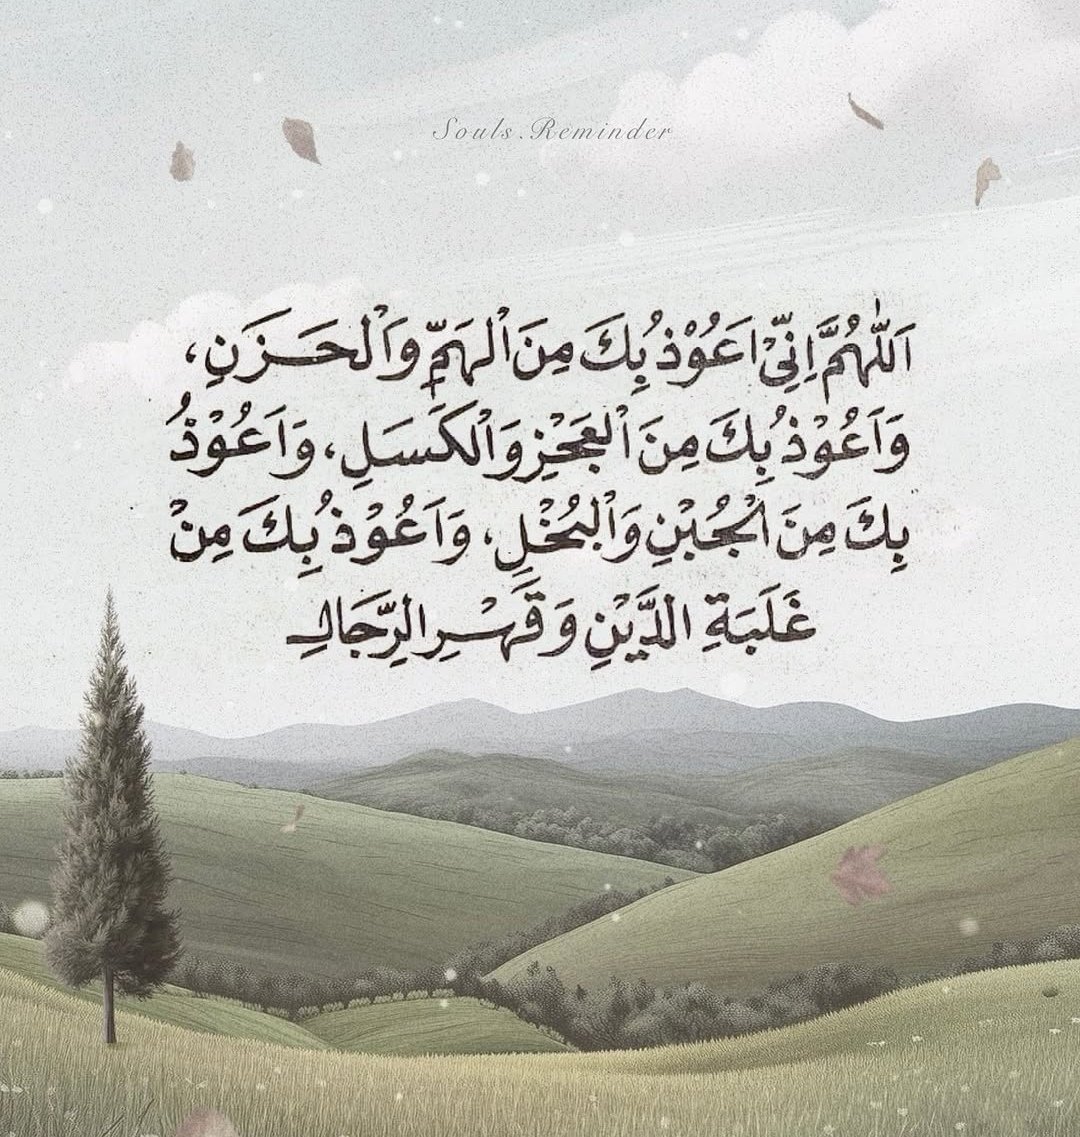 Souls.Reminder
اَللّٰهُمَّ اِنِّيْ اَعُوْذُ بِكَ مِنَ الْهَمِّ وَالْحَزَنِ،
وَاَعُوْذُ بِكَ مِنَ الْعَجْزِ وَالْكَسَلِ، وَاَعُوْذُ
بِكَ مِنَ الْجُبْنِ وَالْبُخْلِ، وَاَعُوْذُ بِكَ مِنْ
غَلَبَةِ الدَّيْنِ وَقَهْرِ الرِّجَالِ